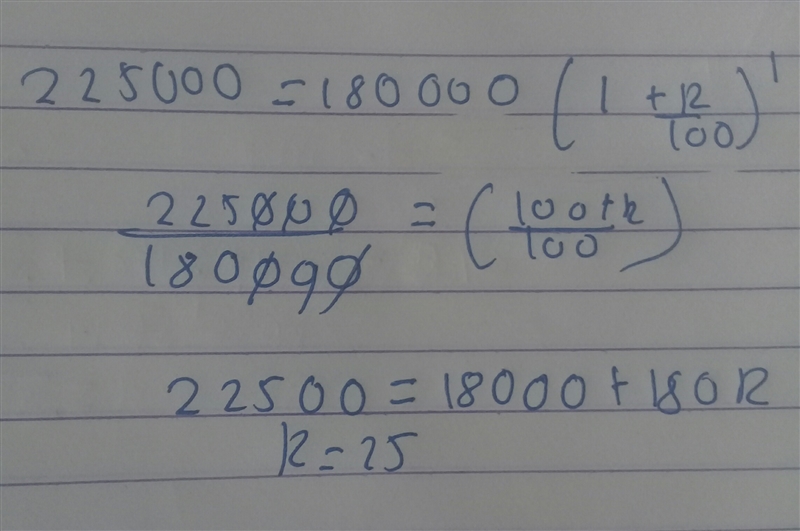 225000 = 180000 (1 + R/100)^1
225000/180000 = (100+R/100)
22500 = 18000 + 180R
R = 25